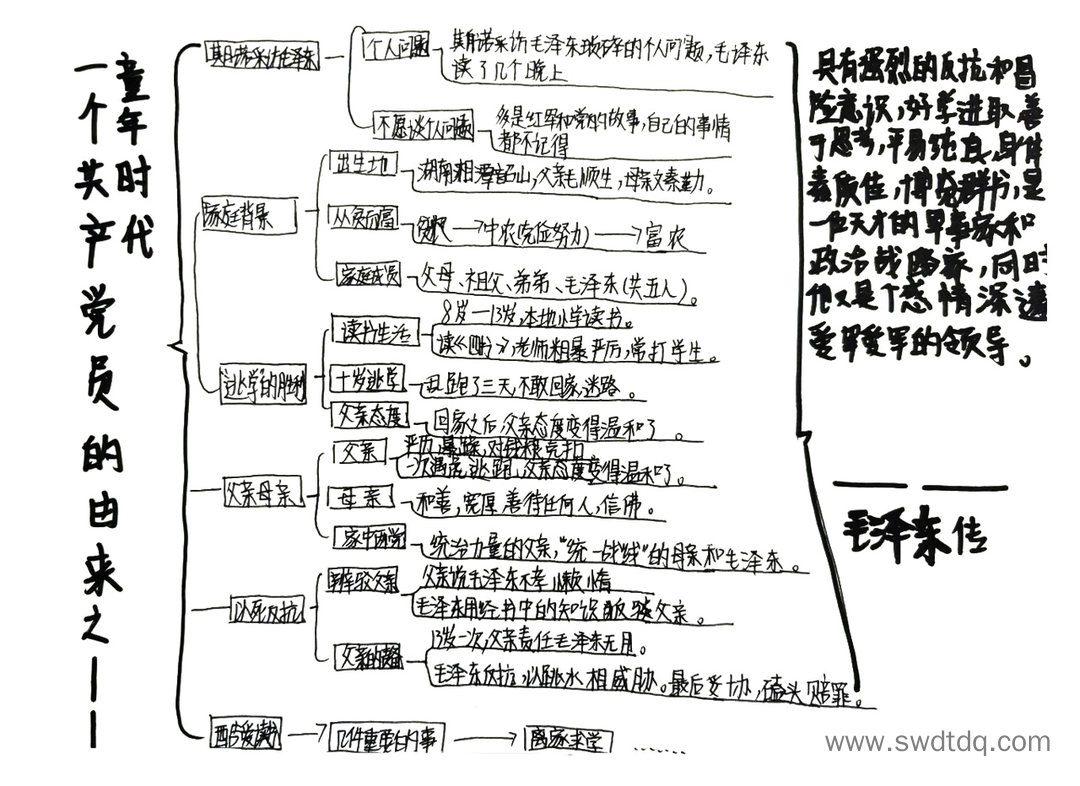 一个共产党员的由来之——
童年时代
斯诺采访毛泽东
个人问题
斯诺采访毛泽东琐碎的个人问题,毛泽东
谈了几个晚上
不愿谈个人问题
多是红军和党内的故事,自己的事情
都不记得
家庭背景
出生地
湖南湘潭韶山,父亲毛顺生,母亲文素勤。
从贫而富
贫农→中农(克俭努力)→富农
家庭成员
父母、祖父、弟弟、毛泽东(共五人)。
逃学的胜利
读书生活
8岁—13岁,本地小学读书。
读《四书》,老师粗暴严厉,常打学生。
十岁逃学
跑了三天,不敢回家,迷路。
父亲态度
回家之后,父亲态度变得温和了。
父亲母亲
父亲
严厉,暴躁,对
一次 逃跑,父亲态度变得温和了。
母亲
和善,宽厚,善待任何人,信佛。
家中两党
统治力量的父亲,“统一战线”的母亲和毛泽东。
以死反抗
辩驳父亲
父亲说毛泽东不孝,懒惰
毛泽东用经书中的知识反驳父亲。
父亲的
13岁一次,父亲责任毛泽东无用。
毛泽东反抗,以跳水相威胁。最后妥协,磕头赔罪。
→几件重要的事→离家求学……
具有强烈的反抗和冒
险意识,好学进取,善
于思考,平易纯真,身体
素质佳,博览群书,是
一位天才的军事家和
政治战略家,同时
他又是个感情深邃
爱军的领导。
——毛泽东传
www.swdtdq.com